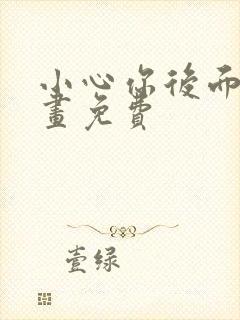 小心你後而
畫免費
壹绿